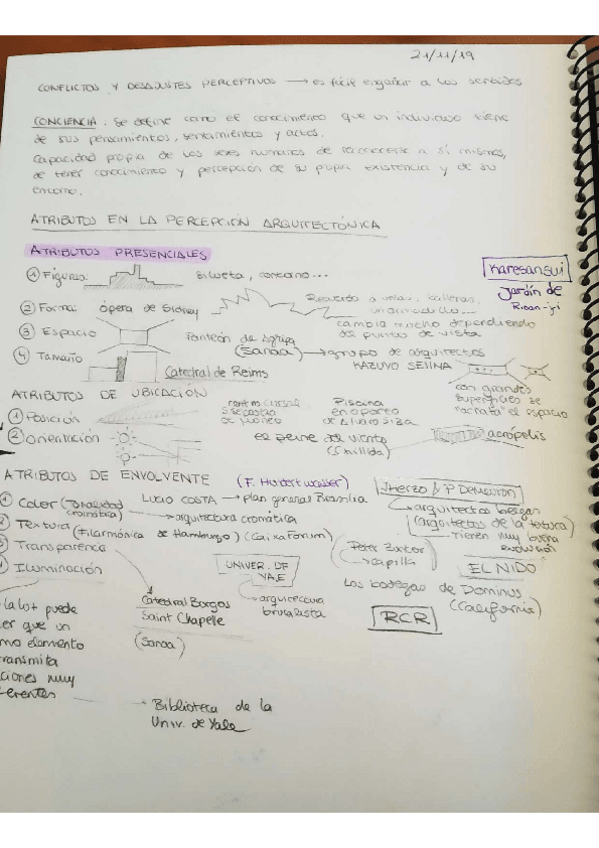 21/11/19
CONFLICTOS Y DESAJUSTES PERCEPTIVOS → es fácil engañar a los sentidos
CONCIENCIA. Se define como el conocimiento que un individuo tiene
de sus pensamientos, sentimientos y actos.
Capacidad propia de los seres humanos de reconocerse a sí mismos,
de tener conocimiento y percepción de su propia existencia y de su
entorno.
ATRIBUTOS EN LA PERCEPCIÓN ARQUITECTÓNICA
ATRIBUTOS PRESENCIALES
① Figura: silueta, contorno...
Karesansui
Jardín de
Rioan-ji
② Forma: ópera de Sidney
Recuerdo a velas, ballenas,
un armadillo...
cambia mucho dependiendo
del punto de vista
③ Espacio
Panteón de Agripa
(Sanaa) → grupo de arquitectos
KAZUYO SEJIMA
④ Tamaño
Catedral de Reims
con grandes
superficies se
"acrata" el espacio
ATRIBUTOS DE UBICACIÓN
① Posición
centro cursal
S. Sebastián
de Moneo
Piscina
en Oporto
de Álvaro Siza
② Orientación
es peine del viento
(Chillida)
acrópolis
ATRIBUTOS DE ENVOLVENTE (F. Hundertwasser)
① Color (Tonalidad
cromática)
LUCIO COSTA → plan general Brasilia
→ arquitectura cromática
Jherzog & P Demeuron
→ arquitectos belgas
(arquitectos de la textura)
→ tienen muy buena
evolución
2 Textura (Filarmónica de Hamburgo) (CaixaForum)
3 Transparencia
Peter Zumtor
→ capilla
EL NIDO
4 Iluminación
UNIVER. DE
YALE
→ arquitectura
brutalista
Las bodegas de Dominus
(California)
RCR
Catedral Burgos
Saint Chapelle
(Sanaa)
la luz puede
er que un
mo elemento
transmita
ciones muy
ferentes
→ Biblioteca de la
Univ. de Yale